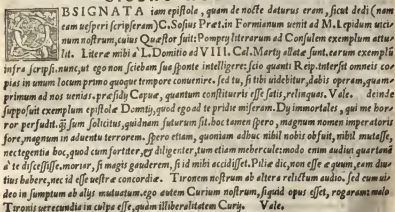 OBSIGNATA iam epistola, quam de nocte daturus eram, sicut dedi (nam
eam uesperi scripseram) C. Sosius Præt. in Formianum uenit ad M. Lepidum uicinum
nostrum, cuius Quæstor fuit: Pompeij literarum ad Consulem exemplum attulit.
Literæ mihi à L. Domitio ad VIII. Cal. Martij allatæ sunt, earum exemplũ
infra scripsi. nunc, ut ego non sciebam sua sponte intelligere: scio quanti Reip. intersit omneis copias
in unum locum primo quoque tempore conuenire. sed tu, si tibi uidebitur, dabis operam, quamprimum
ad nos uenias. præsidij Capuæ, quantum constitueris esse satis, relinquas. Vale. deinde
supposuit exemplum epistolæ Domitij, quod ego ad te pridie miseram. Dij immortales, qui me horror
perfudit. q̃ sum solicitus, quidnam futurum sit. hoc tamen spero, magnum nomen imperatoris
fore, magnum in aduentu terrorem. spero etiam, quoniam adhuc nihil nobis obfuit, nihil mutasse,
negligentia hoc, quod cum fortiter, & diligenter, tum etiam mehercule: modo enim audiui quartanã
à te discessisse. moriar, si magis gauderem, si id mihi accidisset. Piliæ dic, non esse æquum, eam diutius
habere, nec id esse uestræ concordiæ. Tironem nostrum ab altera relictum audio. sed cum uideo
in sumptum ab alijs mutuatum. ego autem Curium nostrum, siquid opus esset, rogaram: malo
Tironis uerecundia in culpa esse, quàm illiberalitatem Curij. Vale.